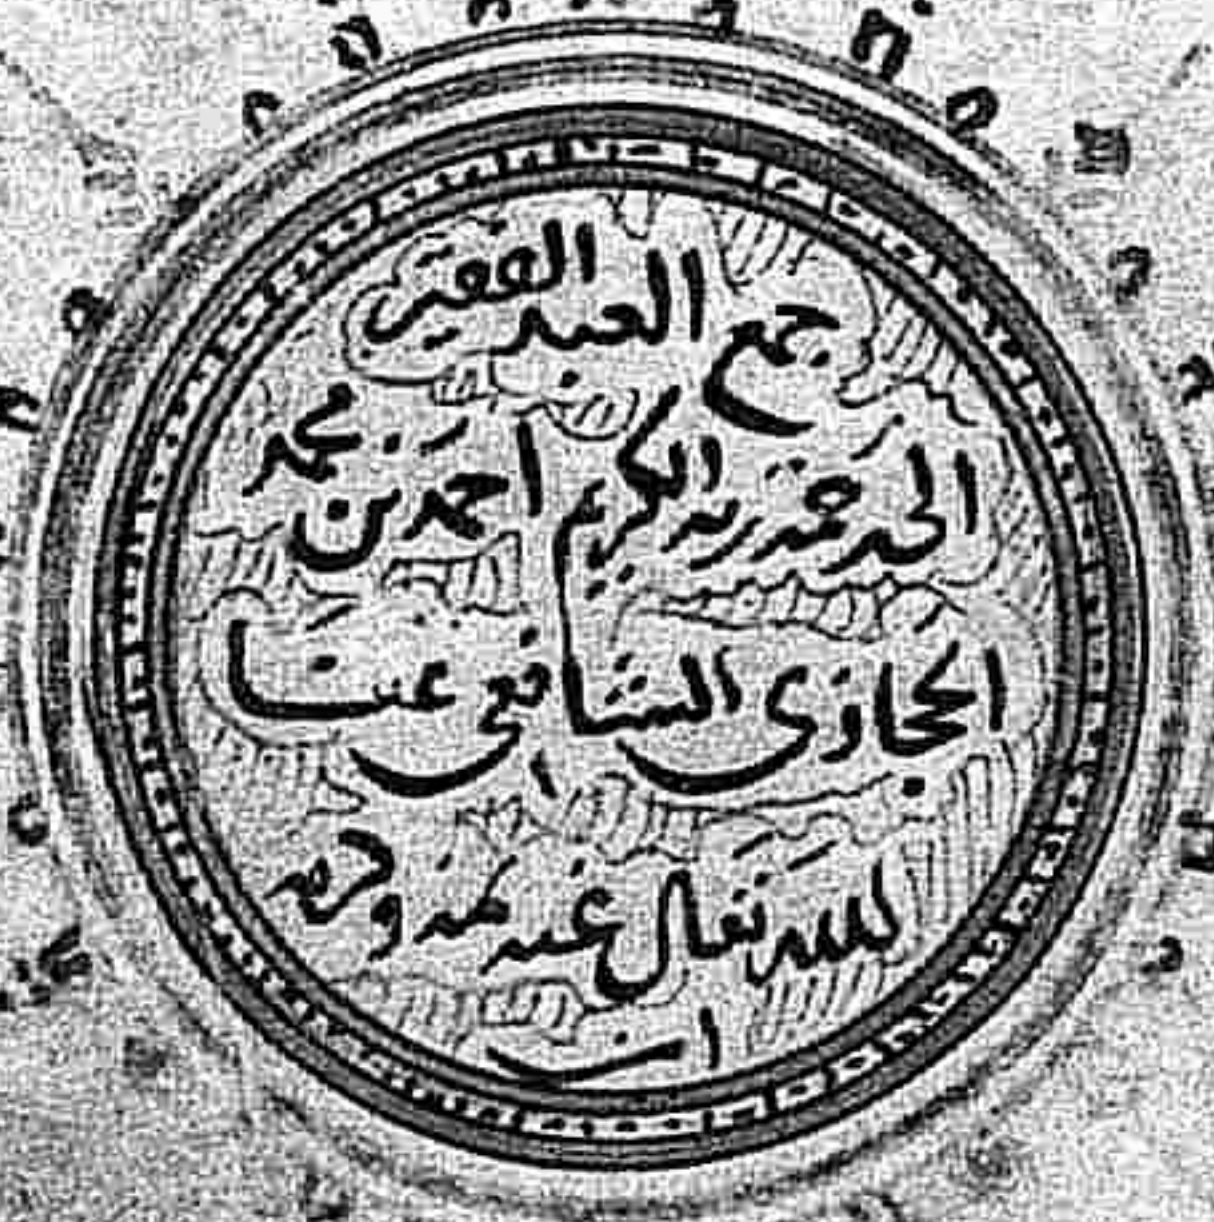 جمع العبد الفقير
الى رحمة ربه الكريم احمد بن محمد
الحجازي الشافعي عفا
الله تعالى عنه بمنه وكرمه